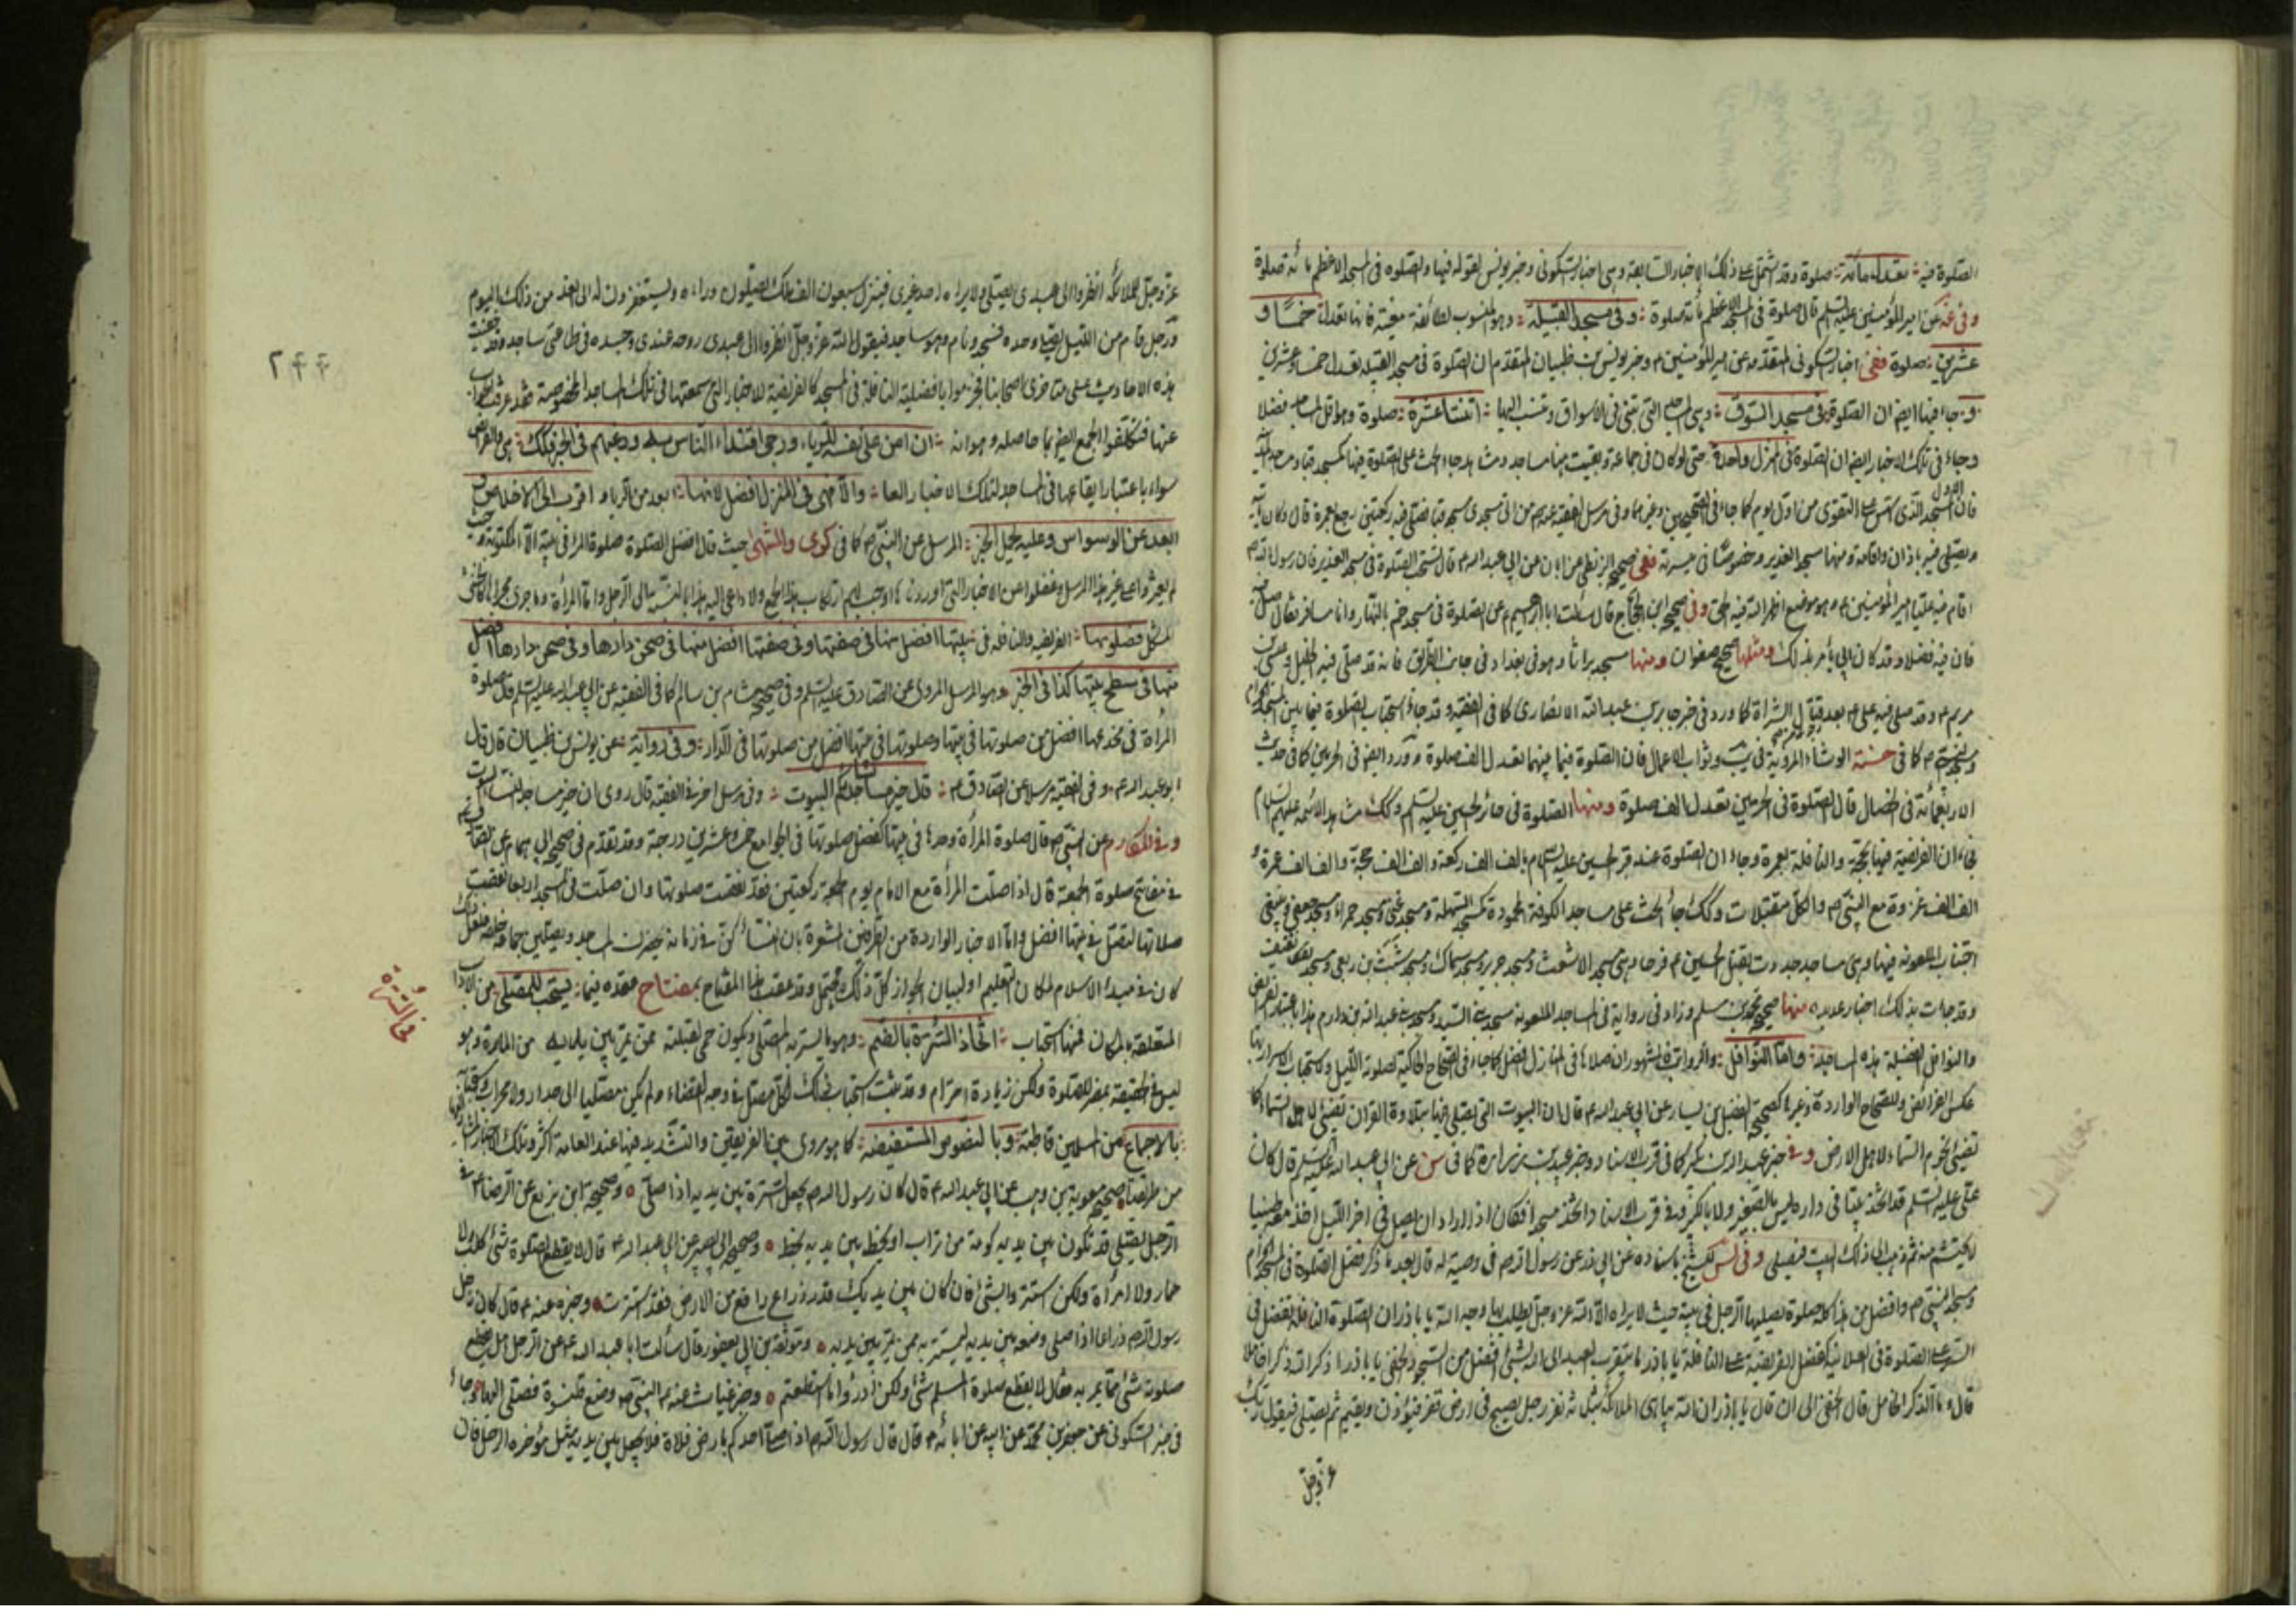 الصلوة فيه تعدل مأئة صلوة وقد اشتمل على ذلك الاخبار السابعة وهى اخبار السكونى وخبر يونس لقوله فيها والصلوه فى المسجد الاعظم مائة صلوة
عن امير المؤمنين عليه السلم قال صلوة فى المسجد الاعظم مائة صلوة وفى مسجد القبيلة وهو المنسوب لطائفة معينة فانها تعدل خمسًا و
عشرين صلوة ففى اخبار السكونى المتقدمه عن امير المؤمنين ع وخبر يونس بن ظبيان المتقدم ان الصلوة فى مسجد القبيله تعدل خمسا وعشرين
وجاء فيها ايضا ان الصلوة فى مسجد السوق وهى المساجد التى تبنى فى الاسواق وتنسب اليها اثنتا عشرة صلوة وهو اقل المساجد فضلا
وجاء فى تلك الاخبار ايضا ان الصلوة فى المنزل واحدة حتى لو كان فى جماعة وبقيت هنا مساجد ومشاهد جاء الحث على الصلوة فيها كمسجد قبا
فان المسجد الذى اسس على التقوى من اول يوم كما جاء فى الصحيحين وغيرهما وفى مرسل الفقيه عنه ص من اتى مسجدى مسجد قبا فصلى فيه ركعتين رجع بعمرة قال وكان
ويصلى فيه باذان واقامة ومنها مسجد الغدير وخصوصًا فى ميسرته ففى صحيح البزنطى عن ابان عن ابى عبد الله ع قال تستحب الصلوة فى مسجد الغدير فان رسول الله ص
اقام فيه عليا امير المؤمنين ع وهو موضع اظهر الله فيه الحق وفى صحيح ابن الحجاج قال سئلت ابا ابرهيم ع عن الصلوة فى مسجد خم بالنهار وانا مسافر فقال صل فيه
فان فيه فضلا وقد كان ابى يأمر بذلك ومثلها صحيح صفوان ومنها مسجد براثا وهو فى بغداد فى جانب الطريق فانه قد صلى فيه الخليل وعيسى بن
مريم ع وقد صلى فيه على ع بعد قتال الشراة كما ورد فى خبر جابر بن عبد الله الانصارى كما فى الفقيه وقد جاء استحباب الصلوة فيما بين المسجد الحرام
ومسجد النبى ص كما فى حسنة الوشاء المروية فى يب وثواب الاعمال فان الصلوة فيما بينهما تعدل الف صلوة وورد ايضا فى الحرمين كما فى حديث
الاربعمأئة فى الخصال قال الصلوة فى الحرمين تعدل الف صلوة ومنها الصلوة فى حائر الحسين عليه السلم وكذلك مشاهد الائمه عليهم السلام
فجاء ان الفريضة فيها بحجة والنافلة بعمرة وجاء ان الصلوة عند قبر الحسين عليه السلام بالف الف ركعة والف الف حجة والف الف عمرة و
الف الف غزوة مع النبى ص والكل متقبلات وكذلك جاء الحث على مساجد الكوفة المحمودة كمسجد السهلة ومسجد غنى ومسجد حمراء ومسجد جعفى وينبغى
اجتناب الملعونه فيها وهى مساجد جددت لقتل الحسين ع فرحا وهى مسجد الاشعث ومسجد جرير ومسجد سماك ومسجد شبث بن ربعى ومسجد ثقيف
وقد جاءت بذلك اخبار عديده منها صحيح محمد بن مسلم وزاد فى رواية فى المساجد الملعونه مسجد بنى السيد ومسجد بنى عبد الله بن دارم هذا باعتبار الفرائض
والنوافل لفضيلة هذه المساجد واما النوافل والرواتب فالمشهور ان صلاتها فى المنازل افضل كما جاء فى الصحاح الحاكية لصلوة الليل واستحباب الاسرار بها
عكس الفرائض وللصحاح الواردة وغيرها كصحيح الفضيل بن يسار عن ابى عبد الله ع قال ان البيوت التى يصلى فيها بتلاوة القران تضيئ لاهل السماء كما
تضيئ نجوم السماء لاهل الارض وفى خبر عبد الله بن بكير كما فى قرب الاسناد وخبر عبيد بن زرارة كما فى سن عن ابى عبد الله عليه السلم قال كان
على عليه السلم قد اتخذ بيتا فى داره ليس بالصغير ولا بالكبير وفى قرب الاسناد واتخذ مسجدا فكان اذا اراد ان يصلى فى اخر الليل اخذ معه صبيا
لا يحتشم منه ثم يذهب الى ذلك البيت فيصلى وفى المجالس للشيخ باسناده عن ابى ذر عن رسول الله ص فى وصية له قال بعد ما ذكر فضل الصلوة فى المسجد الحرام
ومسجد النبى ص وافضل من هذا كله صلوة يصليها الرجل فى بيته حيث لا يراه الا الله عز وجل يطلب بها وجه الله يا باذر ان الصلوة النافلة تفضل فى
السر على الصلوة فى العلانية كفضل الفريضة على النافلة يا باذر ما يتقرب العبد الى الله بشئ افضل من السجود الخفى يا باذر اذكر الله ذكرا خاملا
قال وما الذكر الخامل قال الخفى الى ان قال يا باذر ان الله يباهى الملائكة بثلثة نفر رجل يصبح فى ارض قفر فيؤذن ويقيم ثم يصلى فيقول ربك
عز وجل
عز وجل لملائكته انظروا الى عبدى يصلى ولا يراه احد غيرى فينزل سبعون الف ملك يصلون وراءه ويستغفرون له الى الغد من ذلك اليوم
ورجل قام من الليل يصلى وحده فسجد ونام وهو ساجد فيقول الله عز وجل انظروا الى عبدى روحه عندى وجسده فى طاعتى ساجد وقد خفيت
هذه الاحاديث على متاخرى اصحابنا فجزموا بافضلية النافلة فى المسجد كالفريضة للاخبار التى سمعتها فى تلك المساجد المخصوصة وقد عرفت الجواب
عنها فتكلفوا الجمع ايضا بما حاصله وهو انه ان امن على نفسه الرياء ورجى اقتداء الناس به ورغبهم فى الخير فتلك هى والفرائض
سواء باعتبار ايقاعها فى المساجد لتلك الاخبار العامة والا فهى فى المنزل افضل لانها ابعد من الرياء واقرب الى الاخلاص و
ابعد عن الوسواس وعليه يحمل الخبر المرسل عن النبى ص كما فى كرى والمنتهى حيث قال افضل الصلوة صلوة المرء فى بيته الا المكتوبة وحيث
لم يعثروا على غير هذا المرسل وغفلوا عن الاخبار التى اوردناها اوجب لهم ارتكاب هذا الجمع ولا داعى اليه هذا بالنسبة الى الرجل واما المرأة وما جرى مجراها كالخنثى
المشكل فصلوتها الفريضه والنافله فى بيتها افضل منها فى صفتها وفى صفتها افضل منها فى صحن دارها وفى صحن دارها افضل
منها فى سطح بيتها كذا فى الخبر وهو المرسل المروى عن الصادق عليه السلم وفى صحيح هشام بن سالم كما فى الفقيه عن ابى عبد الله عليه السلم قال صلوة
المرأة فى مخدعها افضل من صلوتها فى بيتها وصلوتها فى بيتها افضل من صلوتها فى الدار وفى رواية عن يونس بن ظبيان قال قال
ابو عبد الله ع وفى الفقيه مرسلا عن الصادق ع قال خير مساجد نسائكم البيوت وفى مرسل اخر فى الفقيه قال روى ان خير مساجد النساء البيوت
وفى المكارم عن النبى ص قال صلوة المرأة وحدها فى بيتها كفضل صلوتها فى الجوامع خمسا وعشرين درجة وقد تقدم فى صحيح ابى همام عن
فى مفاتيح صلوة الجمعة قال اذا صلت المرأة مع الامام يوم الجمعة ركعتين فقد نقصت صلوتها وان صلت فى المسجد اربعا نقصت
صلاتها لتصل فى بيتها افضل واما الاخبار الواردة من الطرفين المشعرة بان النساء كن فى زمانه يحضرن المساجد ويصلين جماعة خلفه فلعل ذلك
كان فى مبدء الاسلام لمكان التعليم او لبيان الجواز كل ذلك محتمل وقد عقب هذا المفتاح بمفتاح عقده فيما يستحب للمصلى من الاداب
المتعلقة بالمكان فمنها استحباب اتخاذ السترة بالضم وهو ما يستر به المصلى ويكون حمى لقبلته ممن يمر بين يديه من المارة وهو
ليس فى الحقيقة بمضر للصلوة ولكن زيادة احترام وقد ثبت استحباب ذلك لكل مصل فى وجه الفضاء ولم يكن مصليا الى جدار ولا محراب
بالاجماع من المسلمين قاطبة وبالنصوص المستفيضه كما هو مروى بين الفريقين والتشديد فيها عند العامة اكثر وتلك
من طرقنا صحيح معوية بن وهب عن ابى عبد الله ع قال كان رسول الله ص يجعل العنزة بين يديه اذا صلى وصحيحة ابن بزيع عن الرضا ع فى
الرجل يصلى قد تكون بين يديه كومة من تراب او يخط بين يديه بخط وصحيحه ابى بصير عن ابى عبد الله ع قال لا يقطع الصلوة شئ كلب ولا
حمار ولا امرأة ولكن استتر والشئ فان كان بين يديك قدر ذراع رافع من الارض فقد استترت وخبره عنه ع قال كان رحل
رسول الله ص ذراعا اذا صلى وضعه بين يديه ليستتر به ممن يمر بين يديه وموثقة بن ابى يعفور قال سألت ابا عبد الله ع عن الرجل هل يقطع
صلوته شئ مما يمر به فقال لا يقطع صلوة المسلم شئ ولكن ادرؤا ما استطعتم وخبر غياث عنه ع ان النبى ص وضع قلنسوة فصلى اليها وجاء
فى خبر السكونى عن جعفر بن محمد عن ابيه عن ابائه ع قال قال رسول الله ص اذا صلى احدكم بارض فلاة فليجعل بين يديه مثل مؤخره الرحل فان